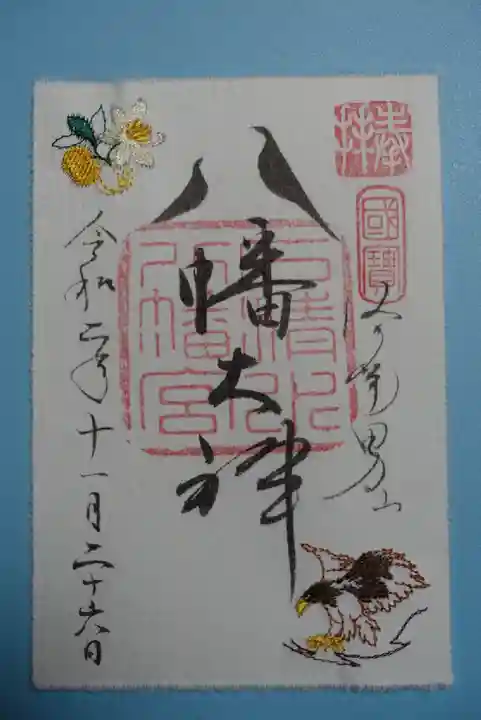 奉拝
國寶
やわた男山
八幡大神
石清水八幡宮
令和二年十一月二十六日